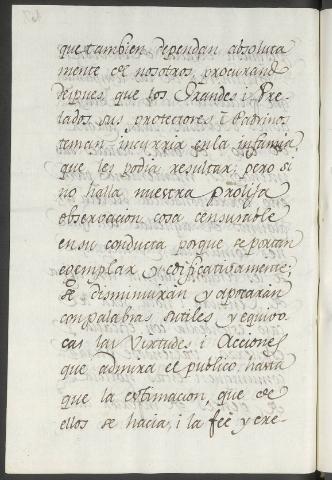 que tambien dependan absoluta
mente de nosotros, procurand
despues que los Grandes i Pre-
lados sus protectores i Padrinos
teman incurrir en la infamia,
que les podia resultar; pero si
no halla nuestra prolija
observacion cosa censurable
en su conducta porque se portan
exemplar y edificativamente;
se disminuirán y apocarán
con palabras sutiles y equivo
cas las Virtudes i Acciones
que admira el publico, hasta
que la estimacion, que de
ellos se hacia, i la feé y cre-